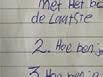 met Het be
de Laatste
2. Hoe ben je
3. Hoe ben je